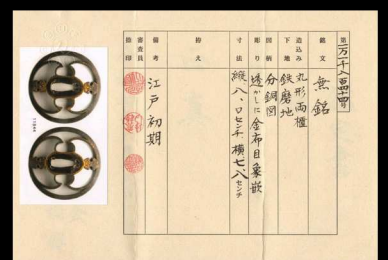 第一万二千八百四十四号
銘文 無銘
造込み 丸形両櫃
下地 鉄磨地
図柄 分銅図
彫り 透かしに金布目象嵌
寸法 縦八、〇センチ 横七、八センチ
拵え
備考 江戸初期
審査員
捺印